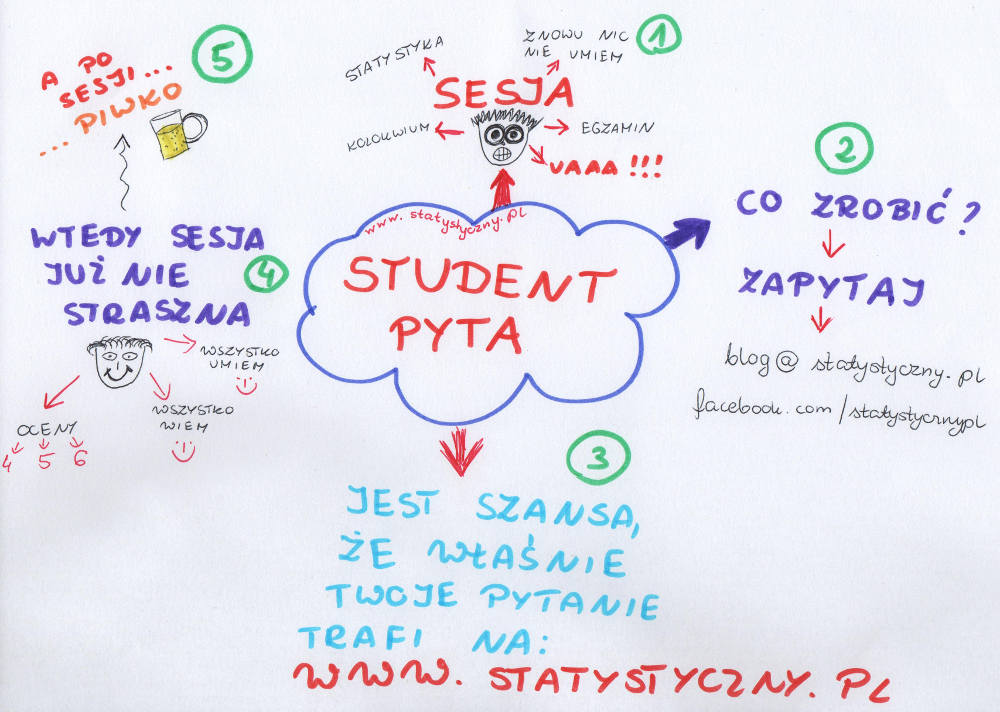 www.statystyczny.pl
STUDENT
PYTA
1
SESJA
STATYSTYKA
ZNOWU NIC
NIE UMIEM
KOLOKWIUM
EGZAMIN
UAAA !!!
2
CO ZROBIĆ?
ZAPYTAJ
blog@statystyczny.pl
facebook.com/statystycznypl
3
JEST SZANSA,
ŻE WŁAŚNIE
TWOJE PYTANIE
TRAFI NA:
WWW.STATYSTYCZNY.PL
4
WTEDY SESJA
JUŻ NIE
STRASZNA
WSZYSTKO
UMIEM
WSZYSTKO
WIEM
OCENY
4 5 6
5
A PO
SESJI...
...PIWKO